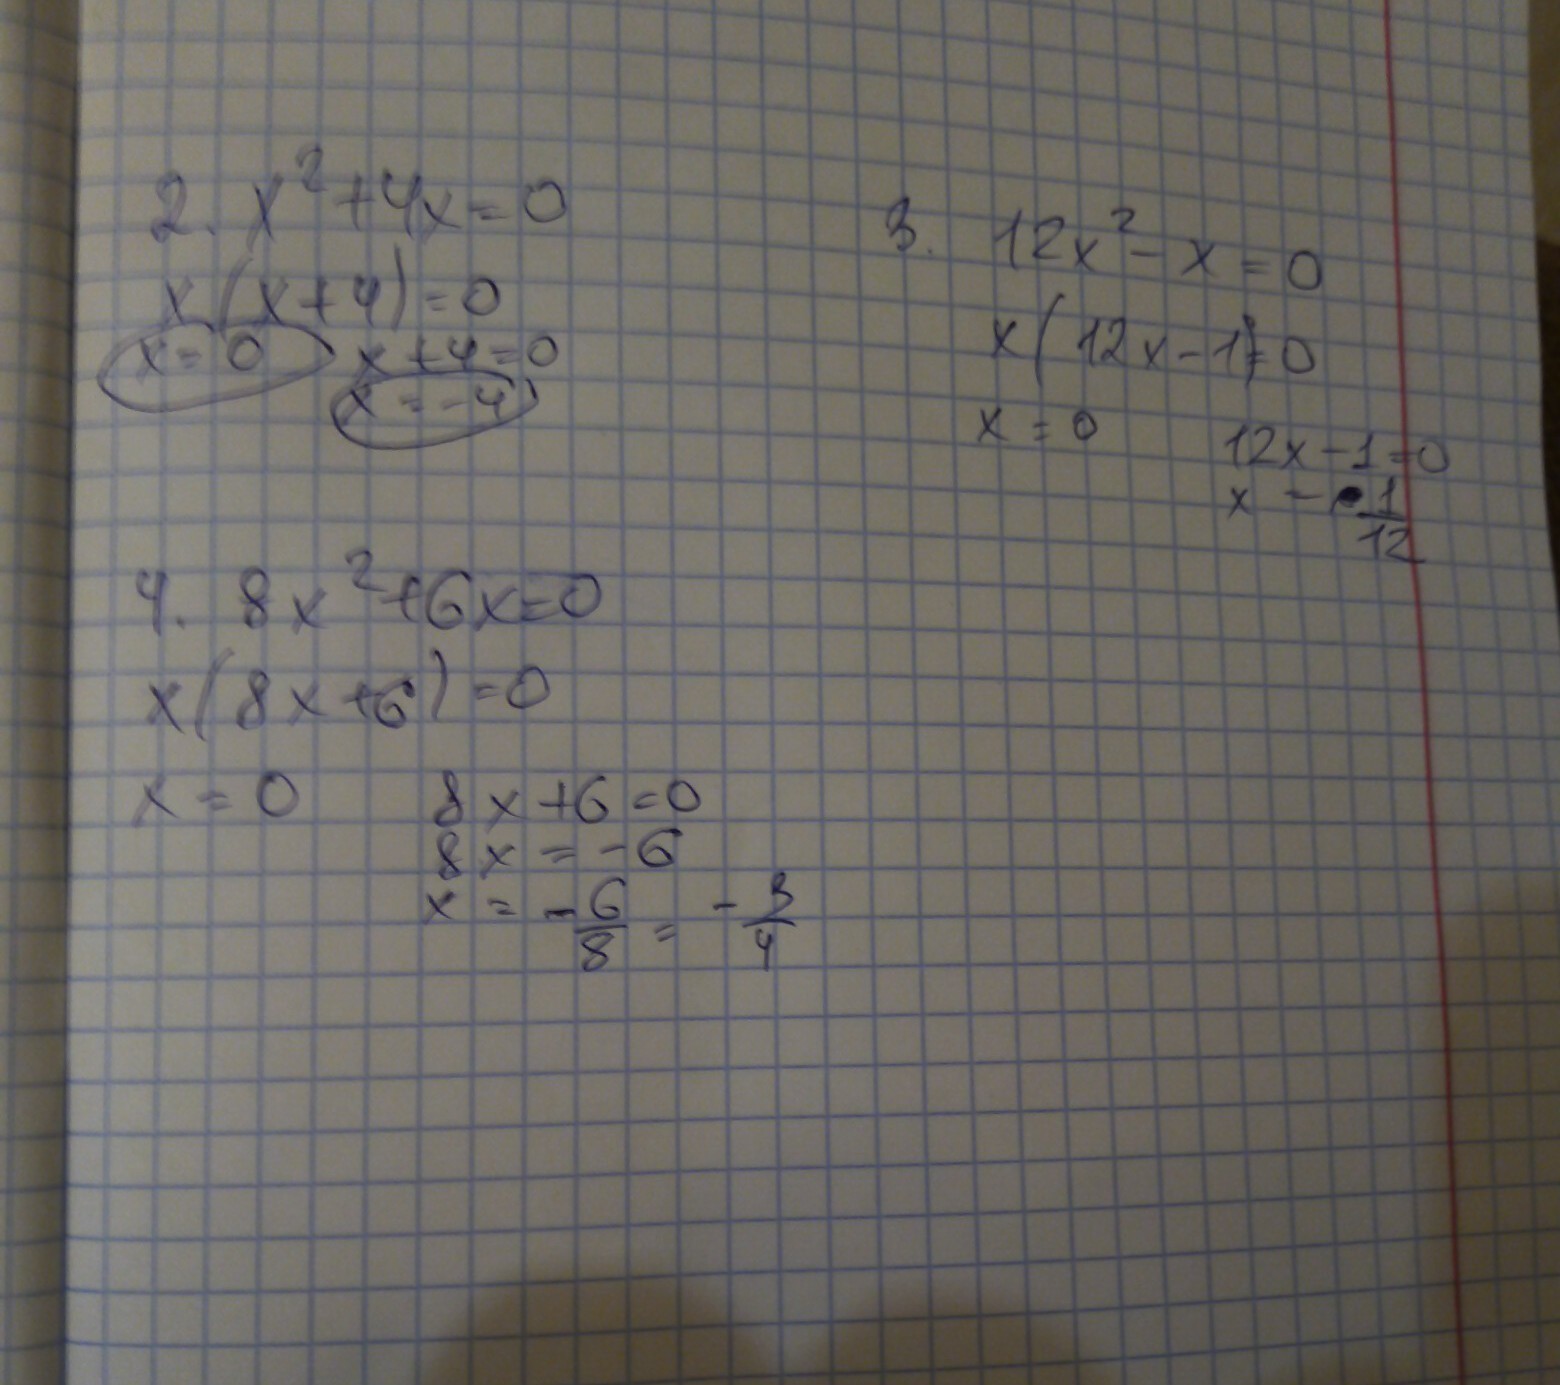 2. x²+4x=0
x(x+4)=0
x=0 x+4=0
x=-4
3. 12x²-x=0
x(12x-1)=0
x=0 12x-1=0
x - 1/12
4. 8x²+6x=0
x(8x+6)=0
x=0 8x+6=0
8x=-6
x=-6/8=-3/4